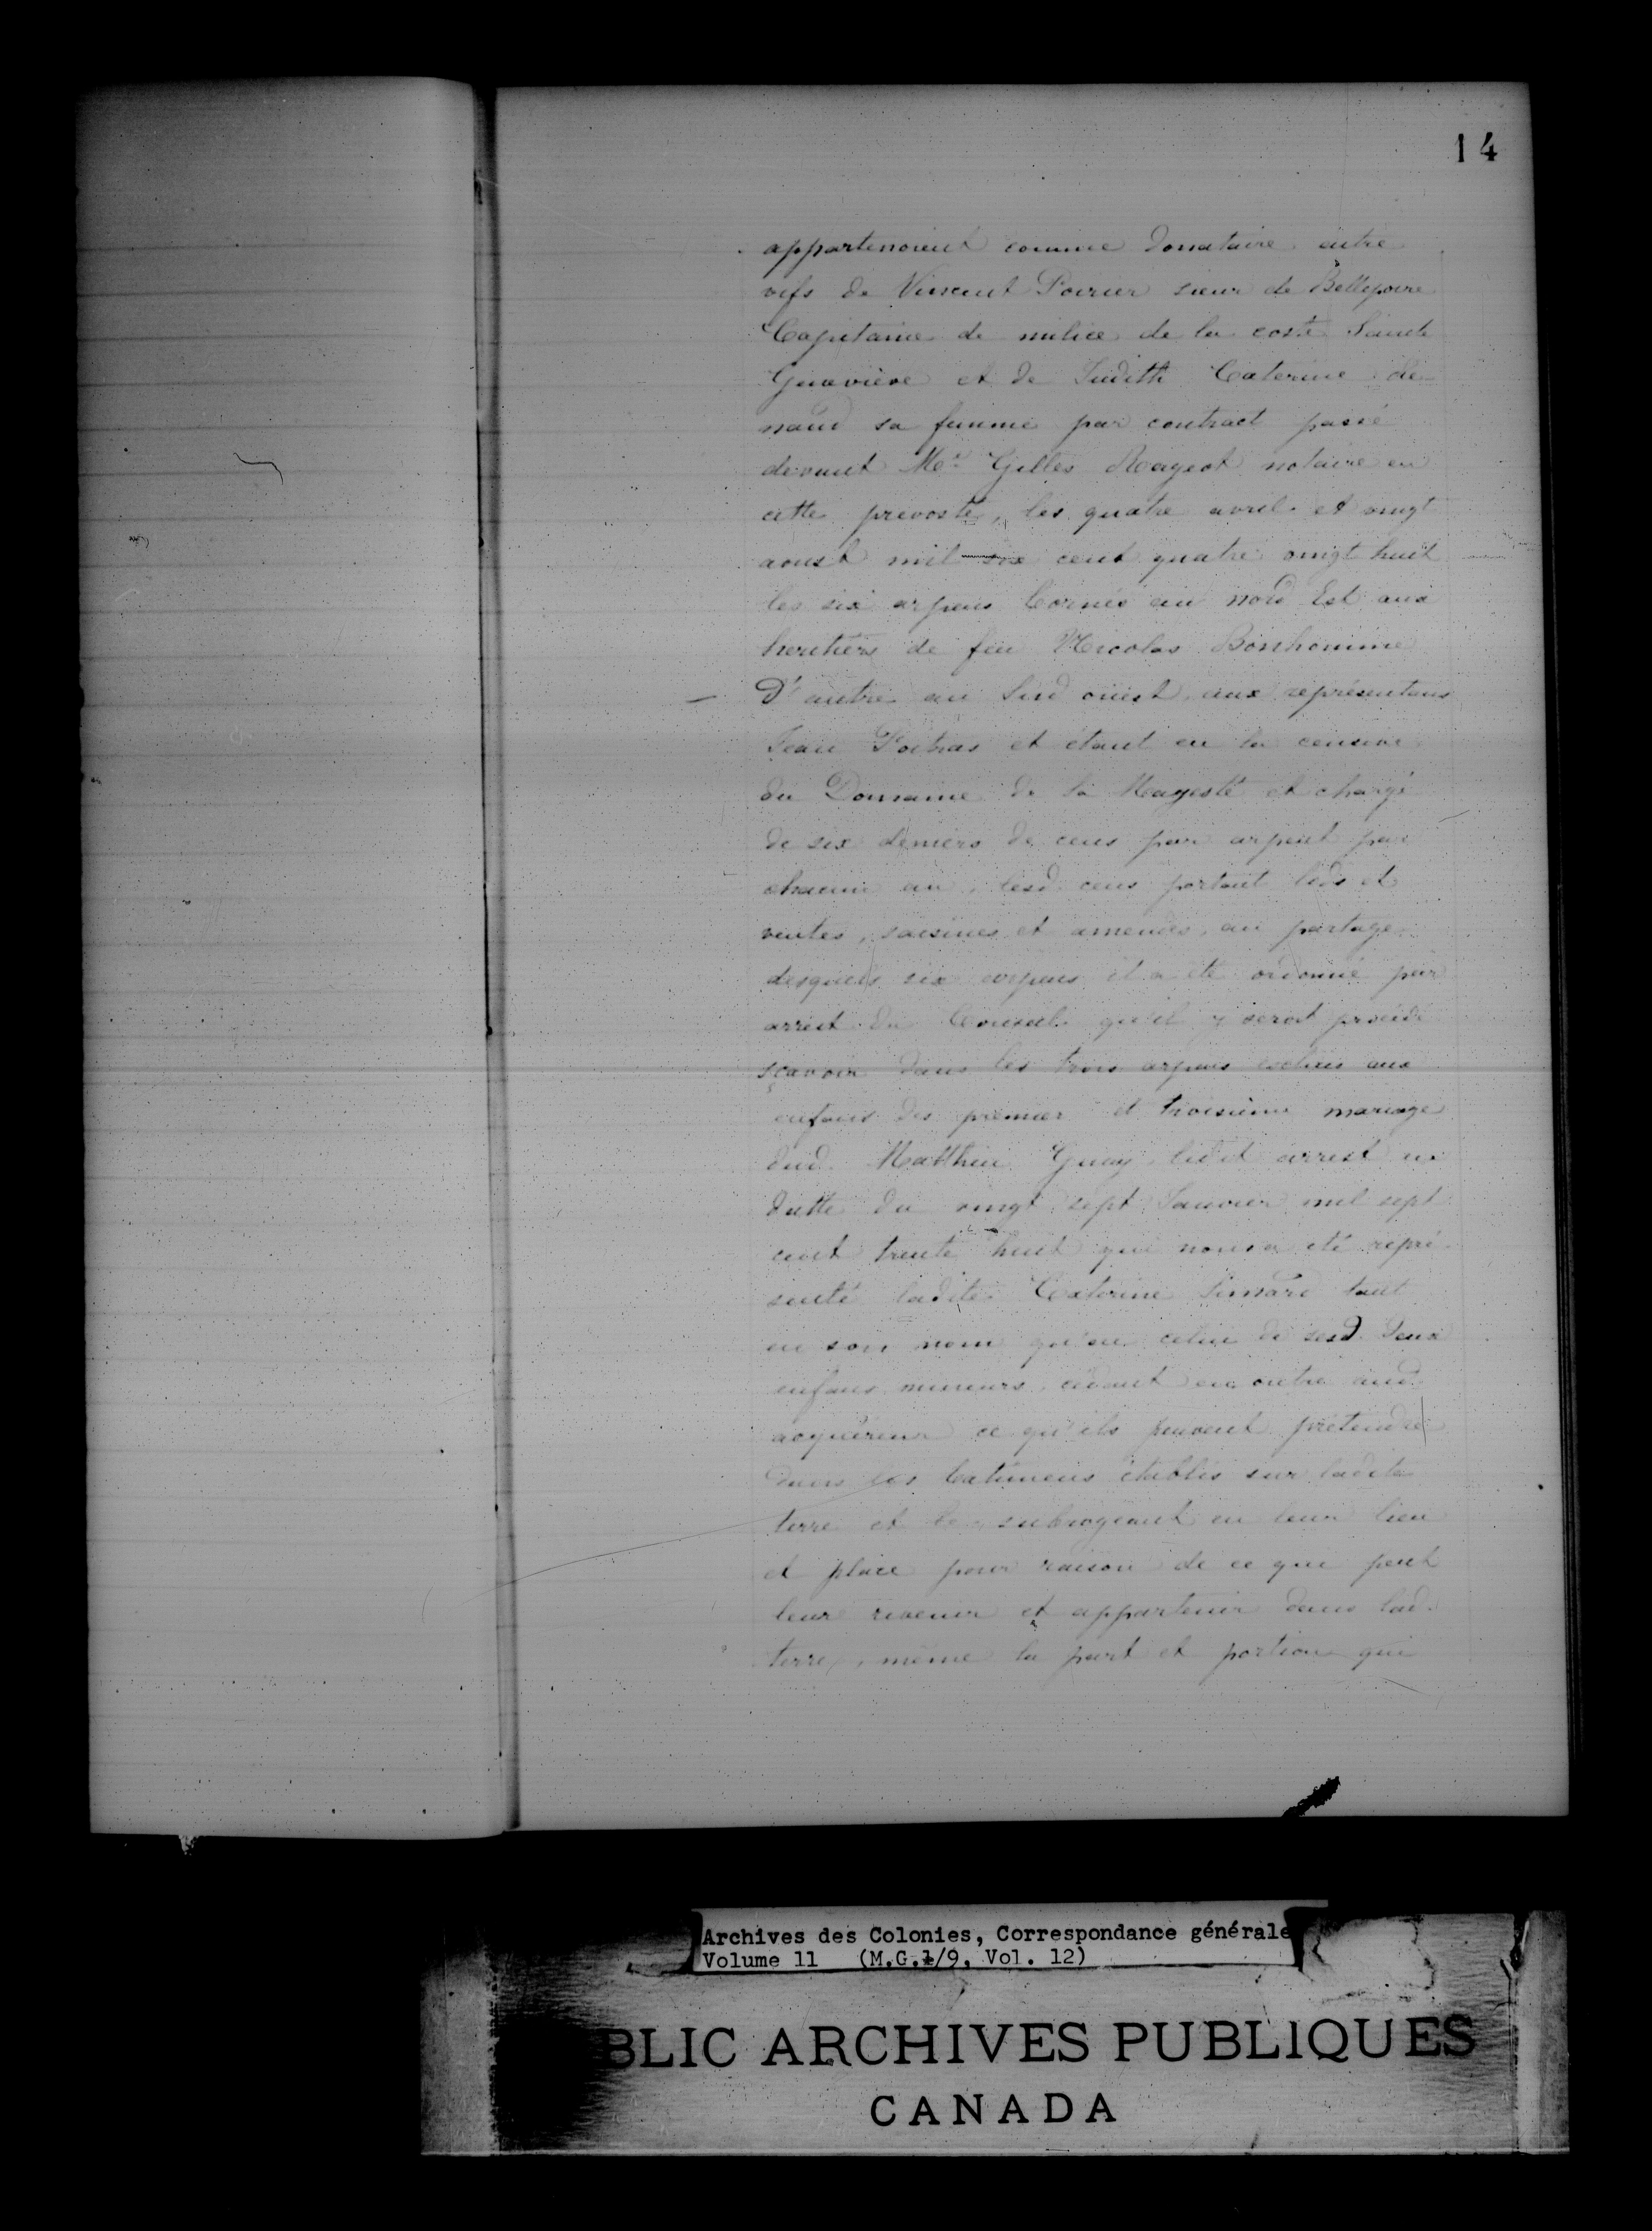 14
appartenoient comme donataire entre
vifs de Vincent Poirier sieur de Bellepoire
Capitaine de milice de la coste Sainte
Geneviève et de Judith Caterine Re-
naud sa femme par contract passé
devant Me. Gilles Rageot notaire en
cette prevosté, les quatre avril et vingt
aoust mil six cent quatre vingt huit
les six arpens bornés au nord Est aux
heritiers de feu Nicolas Bonhomme
D'autre au Sud ouest aux représentans
Jean Poitras et étant en la censive
du Domaine de Sa Majesté et chargé
de six deniers de cens par arpent par
chacun an, lesd. cens portant lods et
ventes, saisines et amendes, au partage
desquels six arpens il a été ordonné par
arrest du Conseil qu'il y seroit procédé
scavoir dans les trois arpens echeus aux
enfans des premier et troisième mariage
dud. Matthieu Guay ledit arrest en
datte du vingt sept Janvier mil sept
cent trente huit qui nous a été repré-
senté ladite Caterine Simard tant
en son nom qu'en celui de sesd. deux
enfans mineurs cédant en outre aud.
acquéreur ce qu'ils peuvent prétendre
dans les batimens établis sur ladite
terre et le subrogeant en leur lieu
et place pour raison de ce que peut
leur revenir et appartenir dans lad.
terre, même la part et portion qui
Archives des Colonies, Correspondance générale
Volume 11 (M.G.1/9, Vol. 12)
BLIC ARCHIVES PUBLIQUES
CANADA